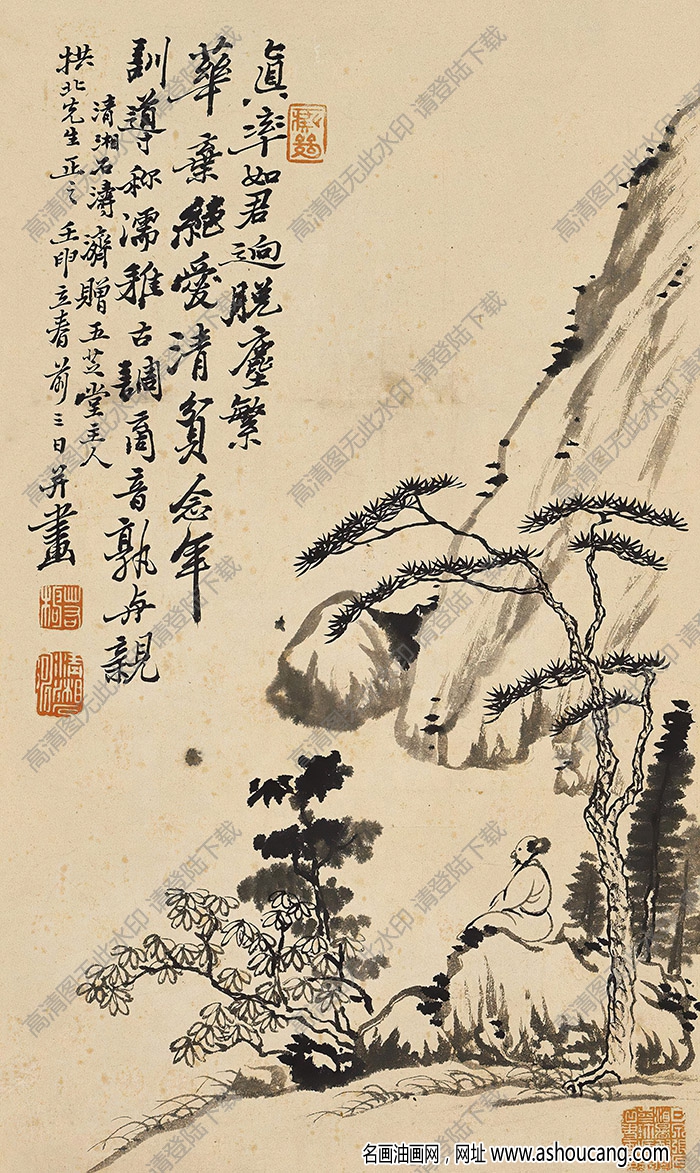 真率如君迥脱塵繁
華棄絕愛清貧念年
訓導称濡雅古調商音孰与親
清湘石濤濟贈五芝堂主人
拱北先生正之 壬申立春前三日并畫
高清图无此水印 请登陆下载
名画油画网，网址 www.ashoucang.com